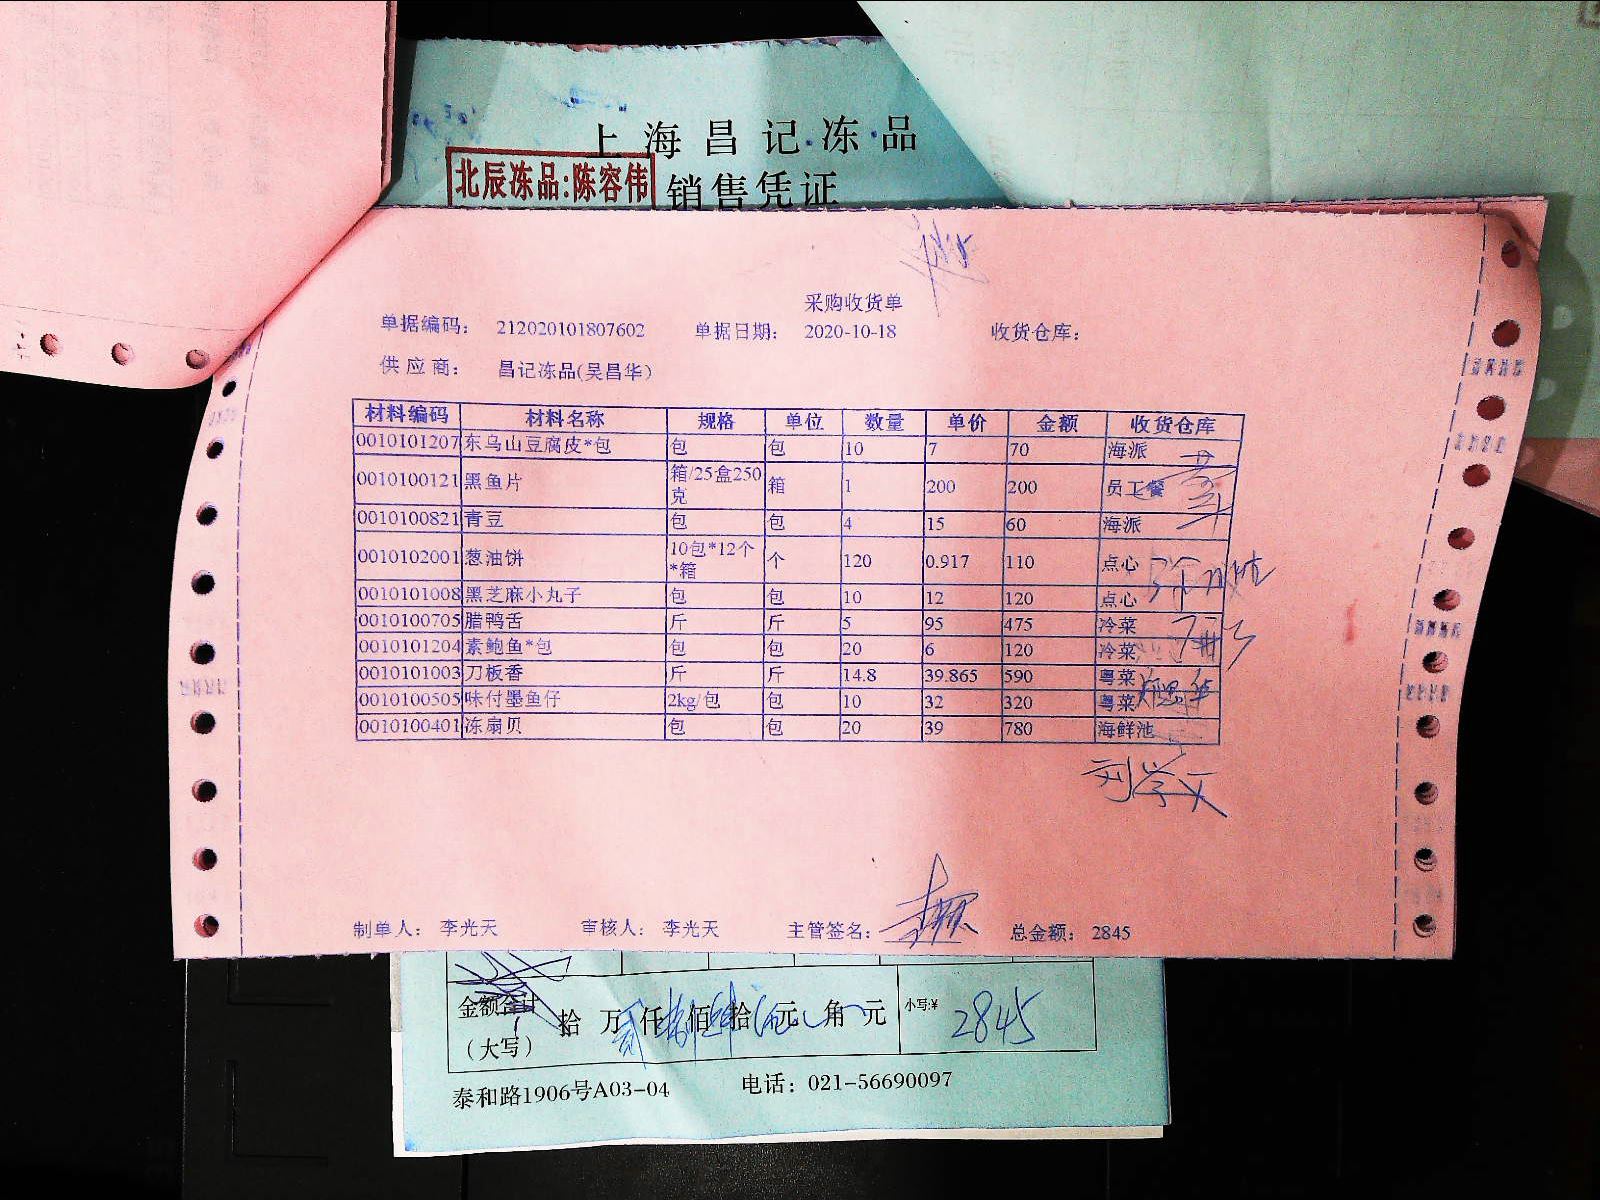 上海昌记冻品
北辰冻品:陈容伟
销售凭证
采购收货单
单据编码: 212020101807602 单据日期: 2020-10-18 收货仓库:
供应商: 昌记冻品(吴昌华)
材料编码 材料名称 规格 单位 数量 单价 金额 收货仓库
0010101207 东乌山豆腐皮*包 包 包 10 7 70 海派
0010100121 黑鱼片 箱/25盒250克 箱 1 200 200 员工餐
0010100821 青豆 包 包 4 15 60 海派
0010102001 葱油饼 10包*12个*箱 个 120 0.917 110 点心
0010101008 黑芝麻小丸子 包 包 10 12 120 点心
0010100705 腊鸭舌 斤 斤 5 95 475 冷菜
0010101204 素鲍鱼*包 包 包 20 6 120 冷菜
0010101003 刀板香 斤 斤 14.8 39.865 590 粤菜
0010100505 味付墨鱼仔 2kg/包 包 10 32 320 粤菜
0010100401 冻扇贝 包 包 20 39 780 海鲜池
刘学文
制单人: 李光天 审核人: 李光天 主管签名: 总金额: 2845
金额合计 拾 万 仟 佰 拾 元 角 元 小写:¥ 2845
(大写)
泰和路1906号A03-04 电话: 021-56690097